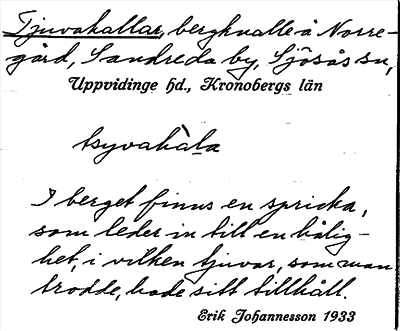 Tjuvakallar, bergknalle å Norre-
gård, Sandreda by, Sjösås sn,
Uppvidinge hd., Kronobergs län
tsyvakàla
I berget finns en spricka,
som leder in till en hålig-
het, i vilken tjuvar, som man
trodde, hade sitt tillhåll.
Erik Johannesson 1933